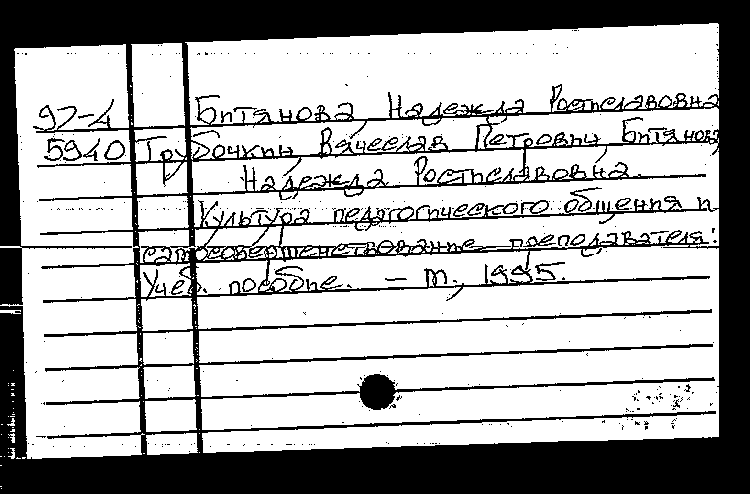 97-4 Битянова, Надежда Ростиславовна
5940 Трубочкин, Вячеслав Петрович, Битянова,
Надежда Ростиславовна.
Культура педагогического общения и
самосовершенствование преподавателя:
Учеб. пособие. – М., 1995.